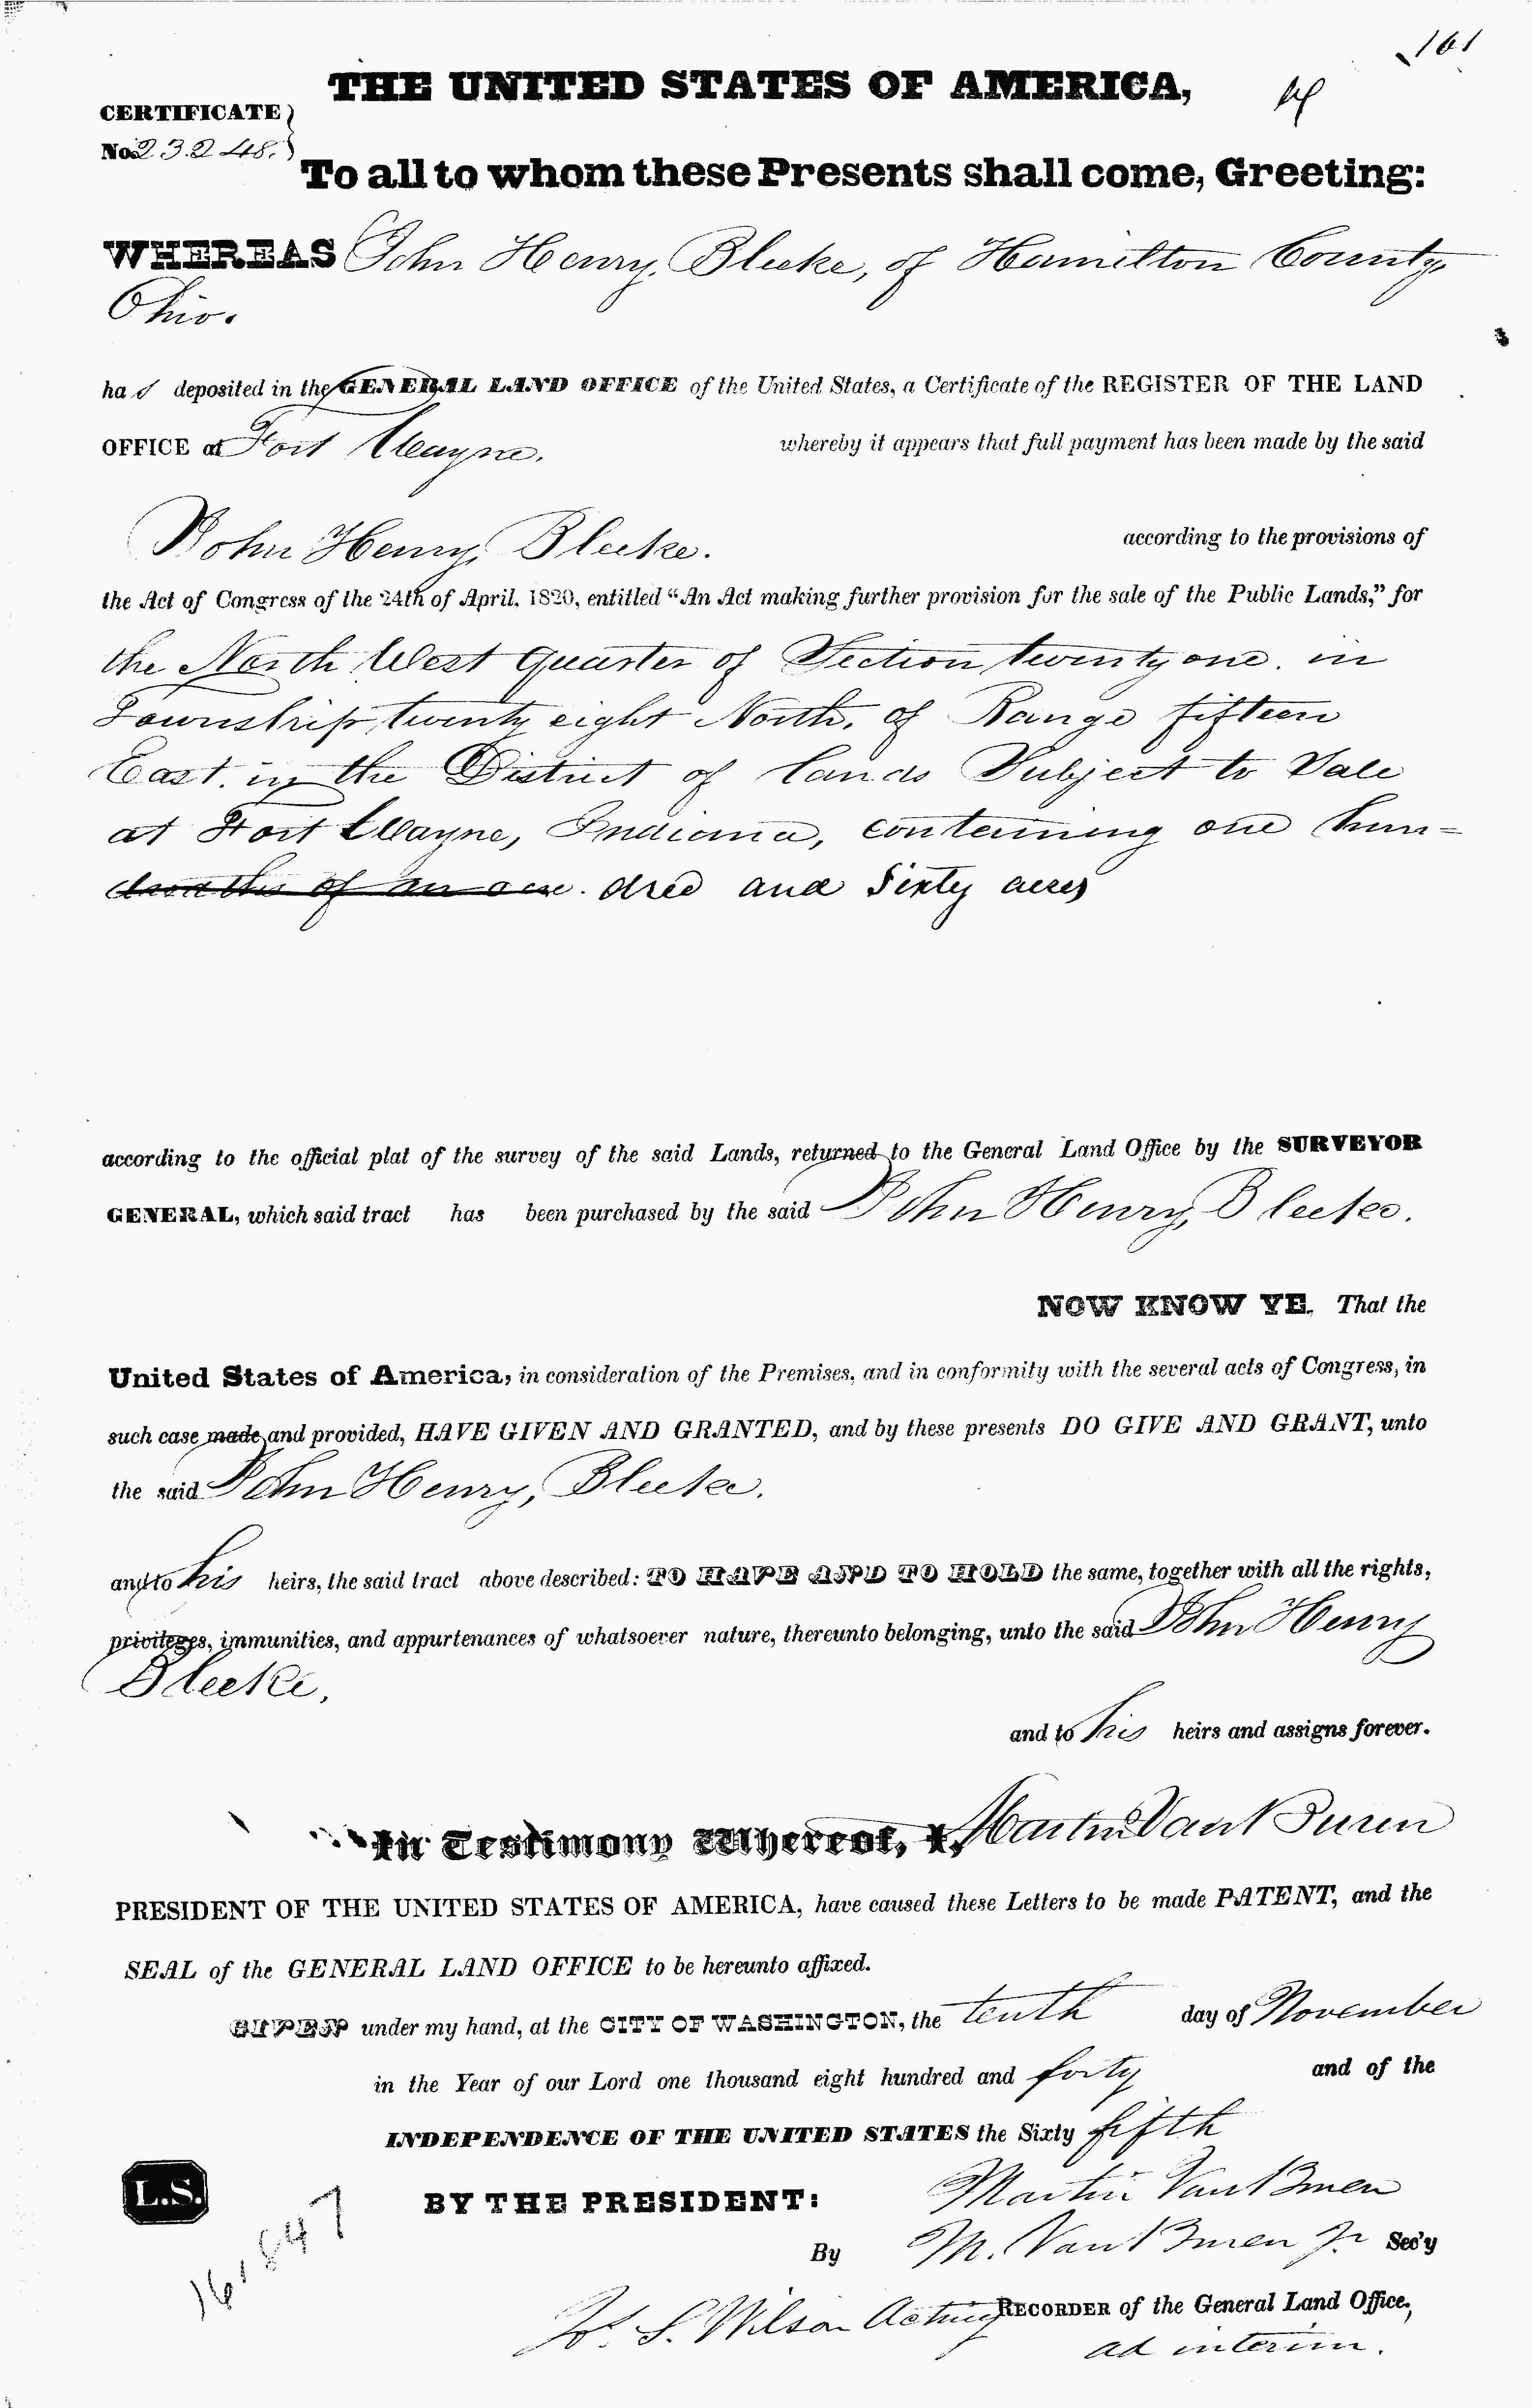 161
THE UNITED STATES OF AMERICA,
CERTIFICATE
No. 23.248.
To all to whom these Presents shall come, Greeting:
WHEREAS John Henry, Bleeke, of Hamilton County,
Ohio.
has deposited in the GENERAL LAND OFFICE of the United States, a Certificate of the REGISTER OF THE LAND
OFFICE at Fort Wayne. whereby it appears that full payment has been made by the said
John Henry, Bleeke. according to the provisions of
the Act of Congress of the 24th of April, 1820, entitled "An Act making further provision for the sale of the Public Lands," for
the North West quarter of Section twenty one. in
Township twenty eight North, of Range fifteen
East. in the District of Lands Subject to Sale
at Fort Wayne, Indiana, containing one hun-
dredths of an acre. dred and Sixty acres
according to the official plat of the survey of the said Lands, returned to the General Land Office by the SURVEYOR
GENERAL, which said tract has been purchased by the said John Henry, Bleeke.
NOW KNOW YE, That the
United States of America, in consideration of the Premises, and in conformity with the several acts of Congress, in
such case made and provided, HAVE GIVEN AND GRANTED, and by these presents DO GIVE AND GRANT, unto
the said John Henry, Bleeke.
and to his heirs, the said tract above described: TO HAVE AND TO HOLD the same, together with all the rights,
privileges, immunities, and appurtenances of whatsoever nature, thereunto belonging, unto the said John Henry
Bleeke,
and to his heirs and assigns forever.
In Testimony Whereof, I, Martin Van Buren
PRESIDENT OF THE UNITED STATES OF AMERICA, have caused these Letters to be made PATENT, and the
SEAL of the GENERAL LAND OFFICE to be hereunto affixed.
GIVEN under my hand, at the CITY OF WASHINGTON, the tenth day of November
in the Year of our Lord one thousand eight hundred and forty and of the
INDEPENDENCE OF THE UNITED STATES the Sixty fifth
L.S.
BY THE PRESIDENT: Martin Van Buren
16,847
By M. Van Buren Jr. Sec'y
Jos. S. Wilson Acting RECORDER of the General Land Office,
ad interim.